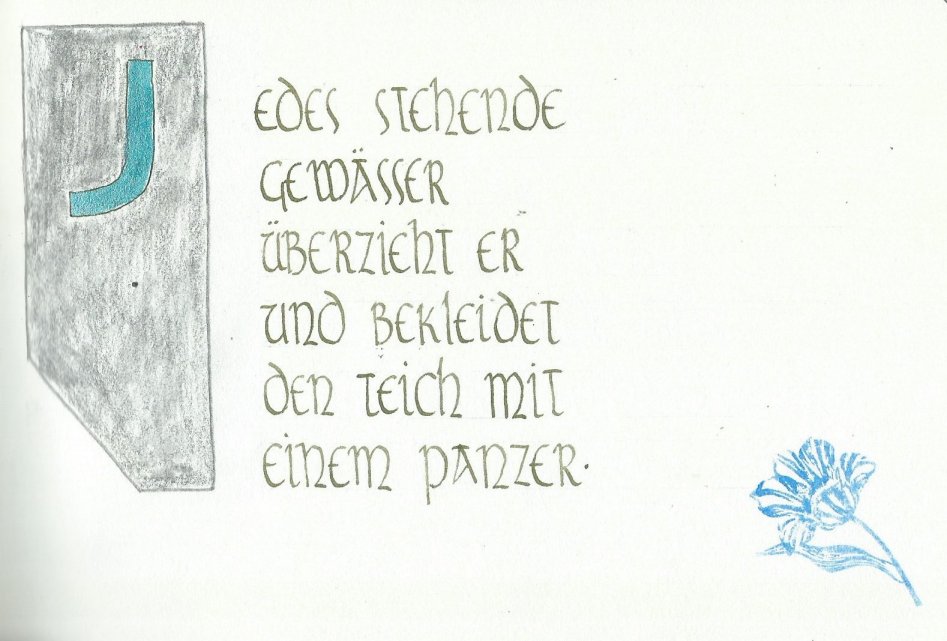 JEDES STEHENDE
GEWÄSSER
ÜBERZIEHT ER
UND BEKLEIDET
DEN TEICH MIT
EINEM PANZER.